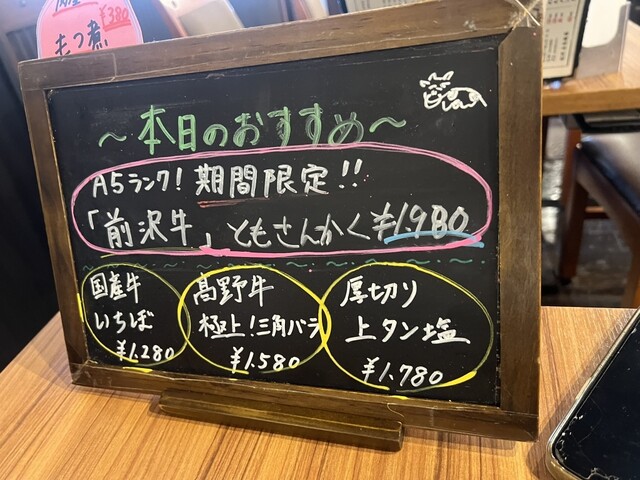 ¥380
もつ煮
～本日のおすすめ～
A5ランク！期間限定！！
「前沢牛」ともさんかく¥1,980
国産牛
いちぼ
¥1,280
高野牛
極上！三角バラ
¥1,580
厚切り
上タン塩
¥1,780